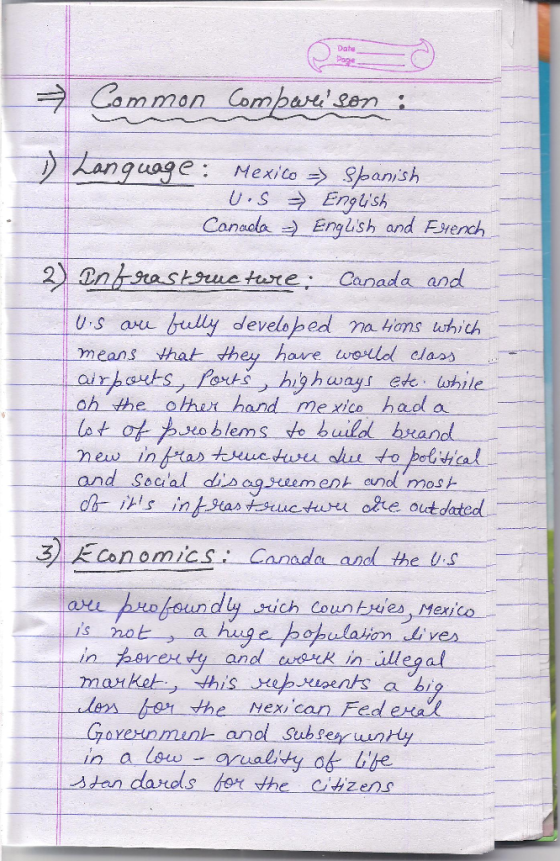 Date
Page
⇒ Common Comparison :
1) Language : Mexico ⇒ Spanish
U.S ⇒ English
Canada ⇒ English and French
2) Infrastructure : Canada and
U.S are fully developed nations which
means that they have world class
airports, Ports, highways etc. while
oh the other hand mexico had a
lot of problems to build brand
new infrastructure due to political
and social disagreement and most
of it's infrastructure are outdated
3) Economics : Canada and the U.S
are profoundly rich countries, Mexico
is not, a huge population lives
in poverty and work in illegal
market, this represents a big
loss for the Mexican Federal
Government and subsequently
in a low - quality of life
standards for the citizens